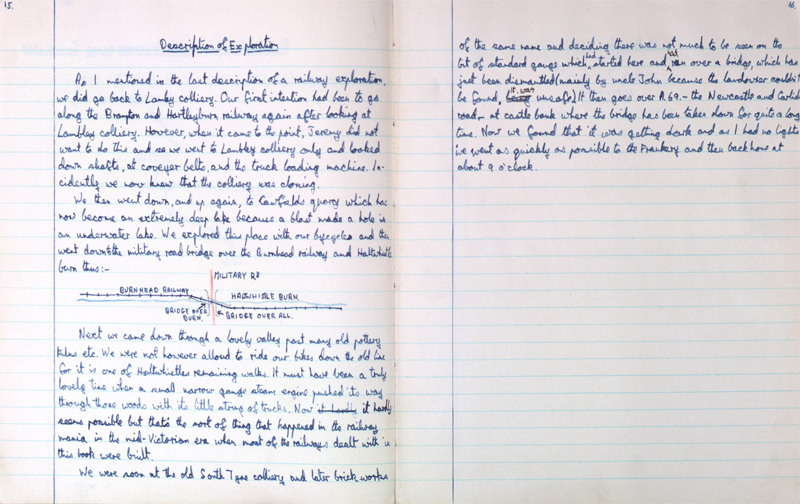 15.
Description of Exploration
As I mentioned in the last description of a railway exploration,
we did go back to Lambley colliery. Our first intention had been to go
along the Brampton and Hartleyburn railway again after looking at
Lambley colliery. However, when it came to the point, Jeremy did not
want to do this and so we went to Lambley colliery only and looked
down shafts, at conveyer belts, and the truck loading machine. In-
cidently we now know that the colliery was closing.
We then went down, and up again, to Cawfields quarry which has
now become an extremely deep lake because a blast made a hole in
an underwater lake. We explored this place with our bycycles and then
went down to the military road bridge over the Burnhead railway and Haltwhistle
burn thus:-
MILITARY RD
BURNHEAD RAILWAY
HALTWHISTLE BURN.
BRIDGE OVER
BURN.
BRIDGE OVER ALL.
Next we came down through a lovely valley past many old pottery
kilns etc. We were not however alloud to ride our bikes down the old line
for it is one of Haltwhistles remaining walks. It must have been a truly
lovely line when a small narrow gauge steam engine pushed its way
through those woods with its little string of trucks. Now it hardly
seems possible but that's the sort of thing that happened in the railway
mania in the mid-Victorian era when most of the railways dealt with in
this book were built.
We were soon at the old South Tyne colliery and later brick works
16.
of the same name and deciding there was not much to be seen on the
bit of standard gauge which had started here and had ran over a bridge, which has
just been dismantled (mainly by uncle John because the landowner couldn't
be found, it was unsafe) It then goes over A.69. - the Newcastle and Carlisle
road - at castle bank where the bridge has been taken down for quite a long
time. Now we found that it was getting dark and as I had no lights
we went as quickly as possible to the Frankery and then back home at
about 9 o'clock.